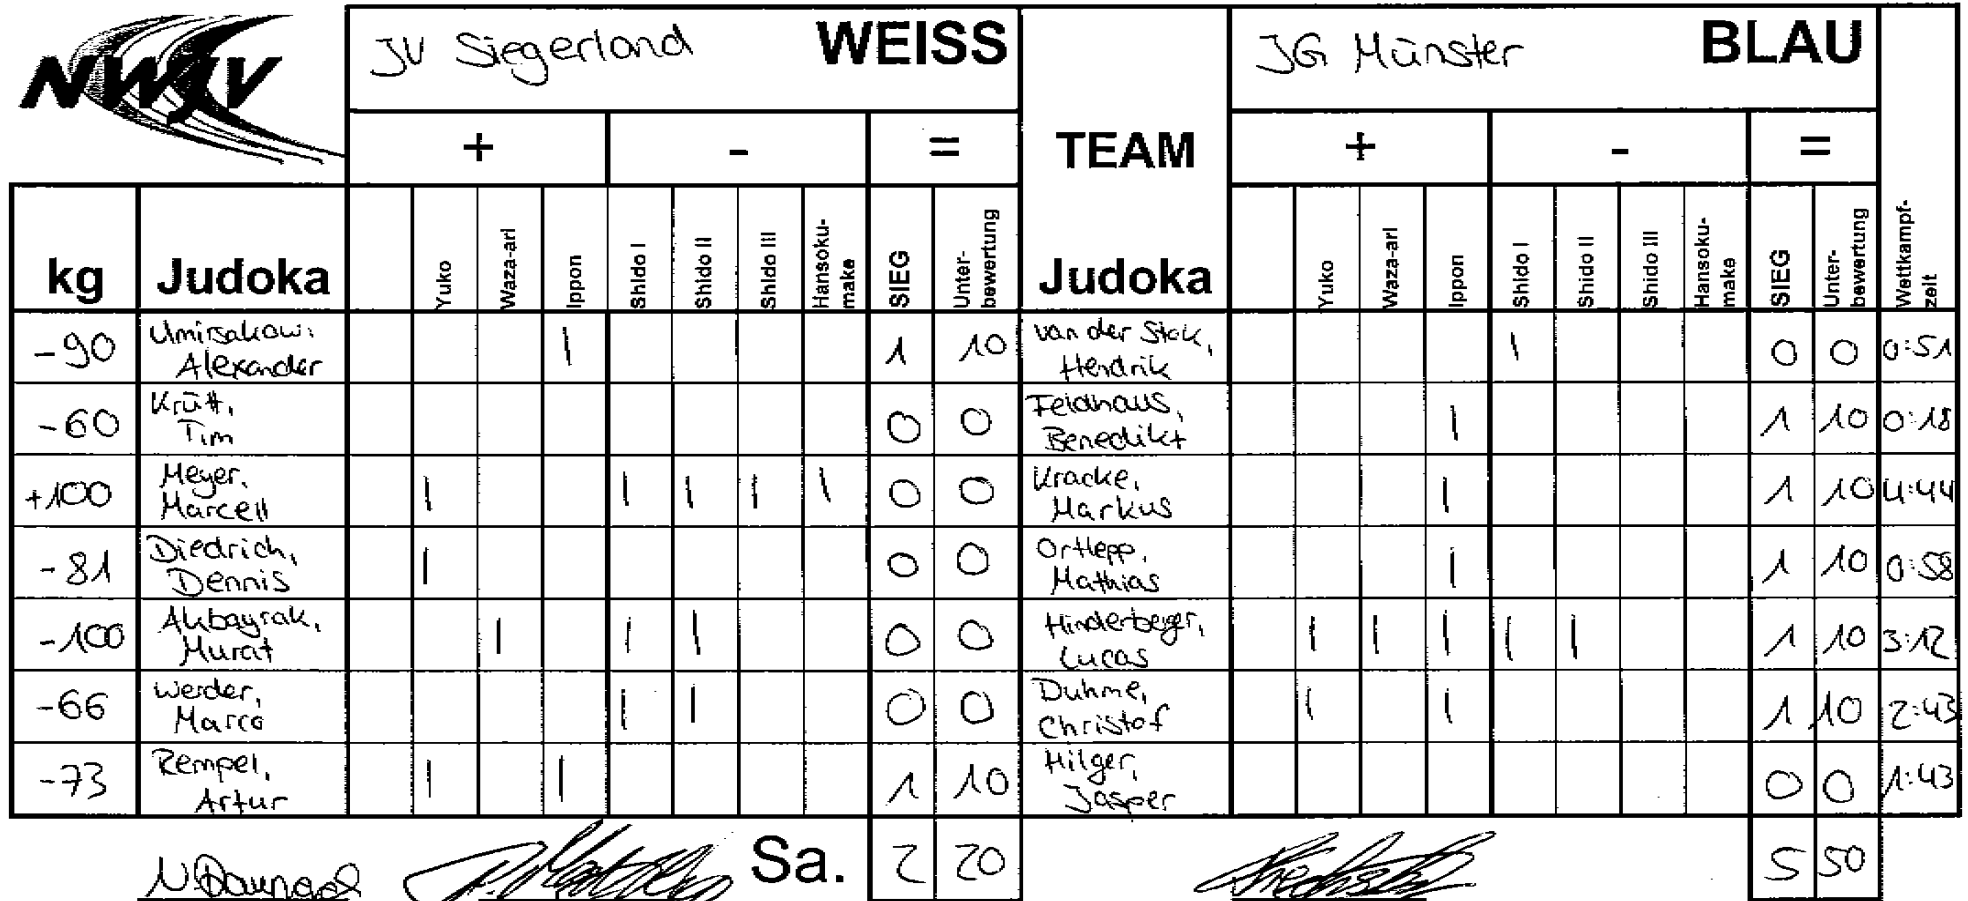 NWJV
JV Siegerland WEISS
TEAM
JG Münster BLAU
+ - =
+ - =
kg Judoka Yuko Waza-ari Ippon Shido I Shido II Shido III Hansoku-make SIEG Unter-bewertung Judoka Yuko Waza-ari Ippon Shido I Shido II Shido III Hansoku-make SIEG Unter-bewertung Wettkampf-zeit
-90 Umirsakow, Alexander | 1 10 van der Stok, Hendrik | 0 0 0:51
-60 Krütt, Tim 0 0 Feldhaus, Benedikt | 1 10 0:18
+100 Meyer, Marcell | | | | | 0 0 Kracke, Markus | 1 10 4:44
-81 Diedrich, Dennis | 0 0 Ortlepp, Mathias | 1 10 0:58
-100 Akbayrak, Murat | | | 0 0 Hinderberger, Lucas | | | | | 1 10 3:12
-66 Werder, Marco | | 0 0 Duhme, Christof | | 1 10 2:43
-73 Rempel, Artur | | 1 10 Hilger, Jasper 0 0 1:43
Sa. 2 20 5 50